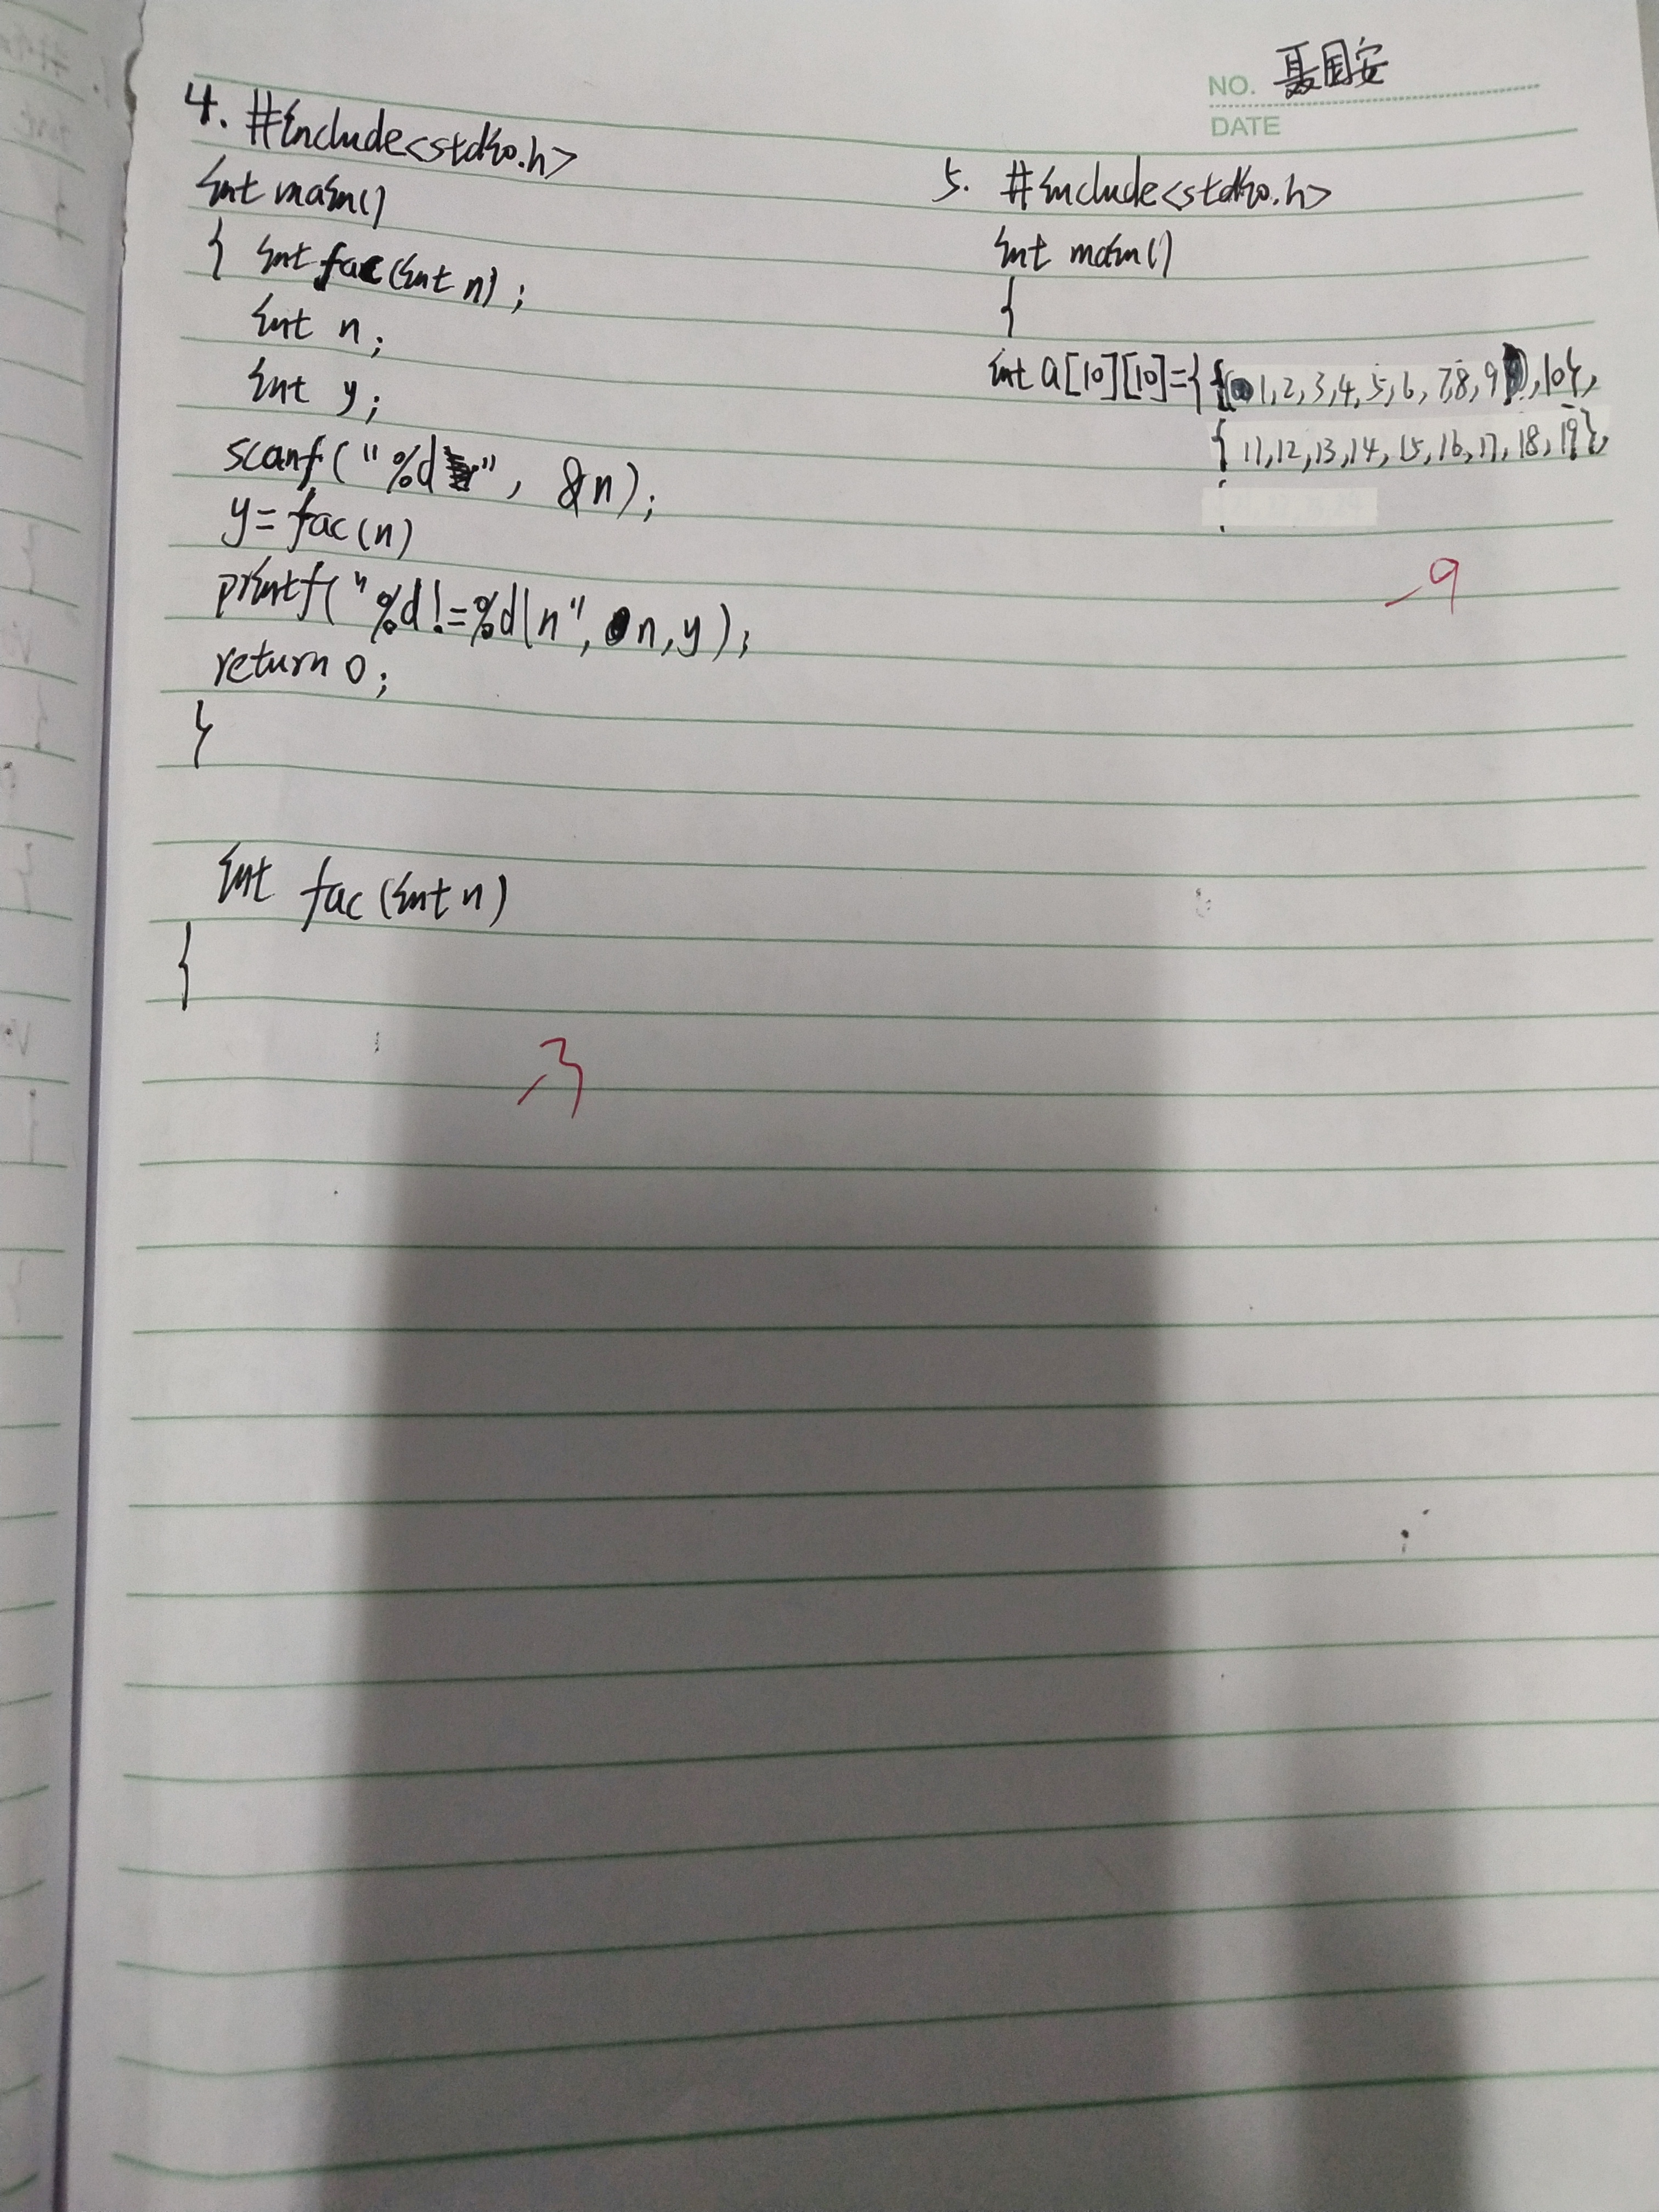 NO. 聂国安
DATE
4. #include<stdio.h>
int main()
{ int fac(int n);
int n;
int y;
scanf("%d", &n);
y=fac(n)
printf("%d!=%d\n", n,y);
return 0;
}
int fac(int n)
{
-3
5. #include<stdio.h>
int main()
{
int a[10][10]={{1,2,3,4,5,6,7,8,9,10},
{11,12,13,14,15,16,17,18,19},
-9